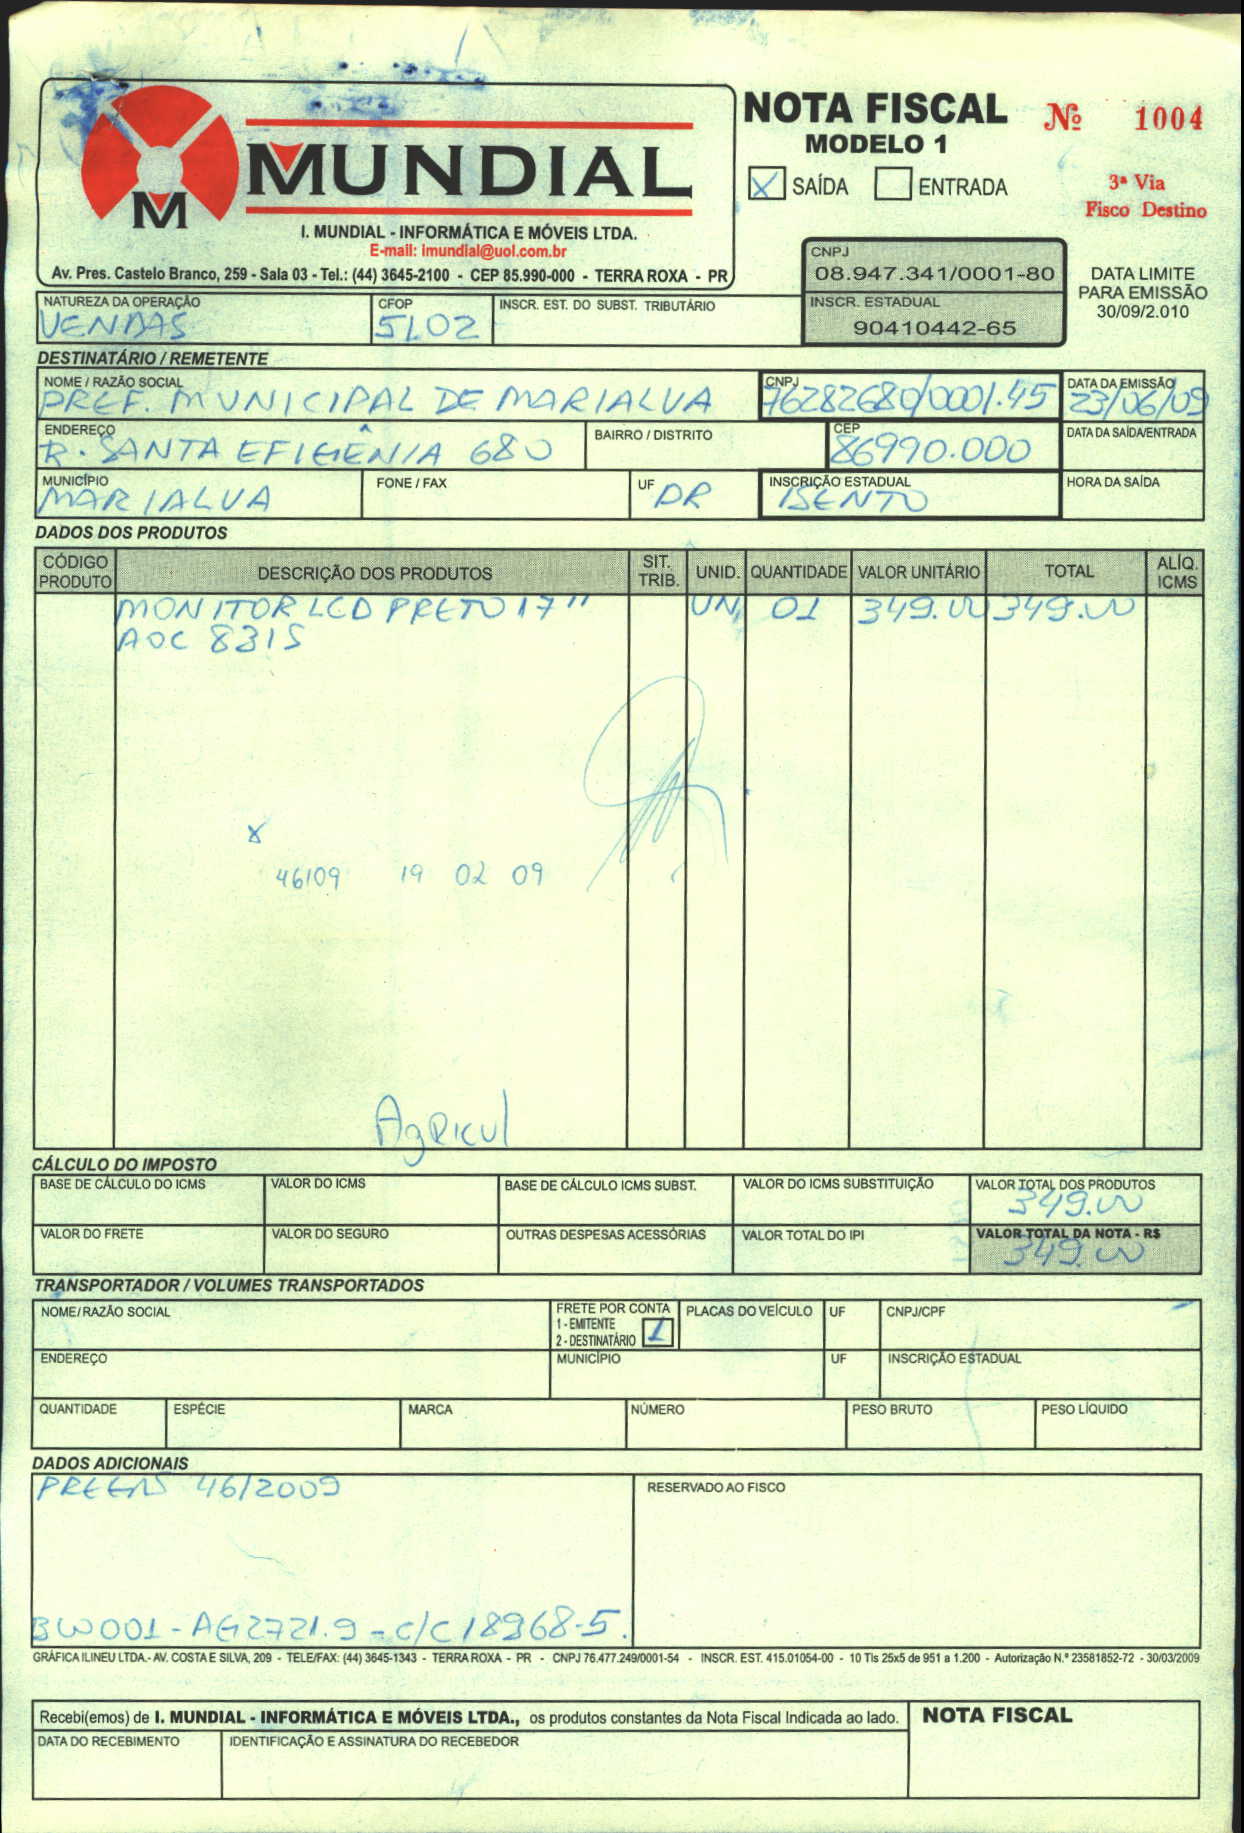 MUNDIAL
M
I. MUNDIAL - INFORMÁTICA E MÓVEIS LTDA.
E-mail: imundial@uol.com.br
Av. Pres. Castelo Branco, 259 - Sala 03 - Tel.: (44) 3645-2100 - CEP 85.990-000 - TERRA ROXA - PR
NOTA FISCAL
MODELO 1
Nº 1004
X SAÍDA ENTRADA
3ª Via
Fisco Destino
CNPJ
08.947.341/0001-80
INSCR. ESTADUAL
90410442-65
DATA LIMITE
PARA EMISSÃO
30/09/2.010
NATUREZA DA OPERAÇÃO CFOP INSCR. EST. DO SUBST. TRIBUTÁRIO
VENDAS 5102
DESTINATÁRIO / REMETENTE
NOME / RAZÃO SOCIAL CNPJ DATA DA EMISSÃO
PREF. MUNICIPAL DE MARIALVA 76282680/0001.45 23/06/09
ENDEREÇO BAIRRO / DISTRITO CEP DATA DA SAÍDA/ENTRADA
R. SANTA EFIGÊNIA 680 86990.000
MUNICÍPIO FONE / FAX UF INSCRIÇÃO ESTADUAL HORA DA SAÍDA
MARIALVA PR ISENTO
DADOS DOS PRODUTOS
CÓDIGO PRODUTO DESCRIÇÃO DOS PRODUTOS SIT. TRIB. UNID. QUANTIDADE VALOR UNITÁRIO TOTAL ALÍQ. ICMS
MONITOR LCD PRETO 17" UN. 01 349.00 349.00
AOC 831S
X
46109 19 02 09
AgRicul
CÁLCULO DO IMPOSTO
BASE DE CÁLCULO DO ICMS VALOR DO ICMS BASE DE CÁLCULO ICMS SUBST. VALOR DO ICMS SUBSTITUIÇÃO VALOR TOTAL DOS PRODUTOS
349.00
VALOR DO FRETE VALOR DO SEGURO OUTRAS DESPESAS ACESSÓRIAS VALOR TOTAL DO IPI VALOR TOTAL DA NOTA - R$
349.00
TRANSPORTADOR / VOLUMES TRANSPORTADOS
NOME/RAZÃO SOCIAL FRETE POR CONTA PLACAS DO VEÍCULO UF CNPJ/CPF
1 - EMITENTE
2 - DESTINATÁRIO 1
ENDEREÇO MUNICÍPIO UF INSCRIÇÃO ESTADUAL
QUANTIDADE ESPÉCIE MARCA NÚMERO PESO BRUTO PESO LÍQUIDO
DADOS ADICIONAIS
46/2009
RESERVADO AO FISCO
001 - AG 2721.9 - C/C 18968-5.
GRÁFICA ILINEU LTDA.- AV. COSTA E SILVA, 209 - TELE/FAX: (44) 3645-1343 - TERRA ROXA - PR - CNPJ 76.477.249/0001-54 - INSCR. EST. 415.01054-00 - 10 Tls 25x5 de 951 a 1.200 - Autorização N.º 23581852-72 - 30/03/2009
Recebi(emos) de I. MUNDIAL - INFORMÁTICA E MÓVEIS LTDA., os produtos constantes da Nota Fiscal Indicada ao lado.
NOTA FISCAL
DATA DO RECEBIMENTO IDENTIFICAÇÃO E ASSINATURA DO RECEBEDOR